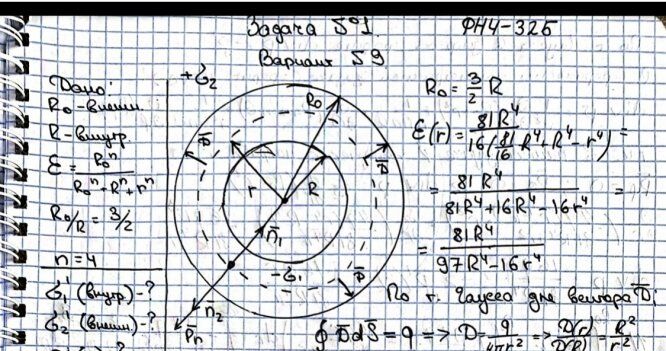 Задача №1
ФН4-32Б
Вариант 59
Дано:
R₀ - внешн.
R - внутр.
ε = R₀ⁿ / (R₀ⁿ + Rⁿ + rⁿ)
R₀/R = 3/2
n = 4
σ₁' (внутр) - ?
σ₂' (внешн) - ?
+σ₂
R₀
D̄
D̄
r
R
n̄₁
-σ₁
D̄
n̄₂
P̄n
R₀ = 3/2 R
ε(r) = 81R⁴ / 16(81/16 R⁴ + R⁴ - r⁴) =
= 81R⁴ / (81R⁴ + 16R⁴ - 16r⁴) =
= 81R⁴ / (97R⁴ - 16r⁴)
По т. Гаусса для вектора D̄:
∮ D̄dS̄ = q => D = q / 4πr² => D(r)/D(R) = R²/r²